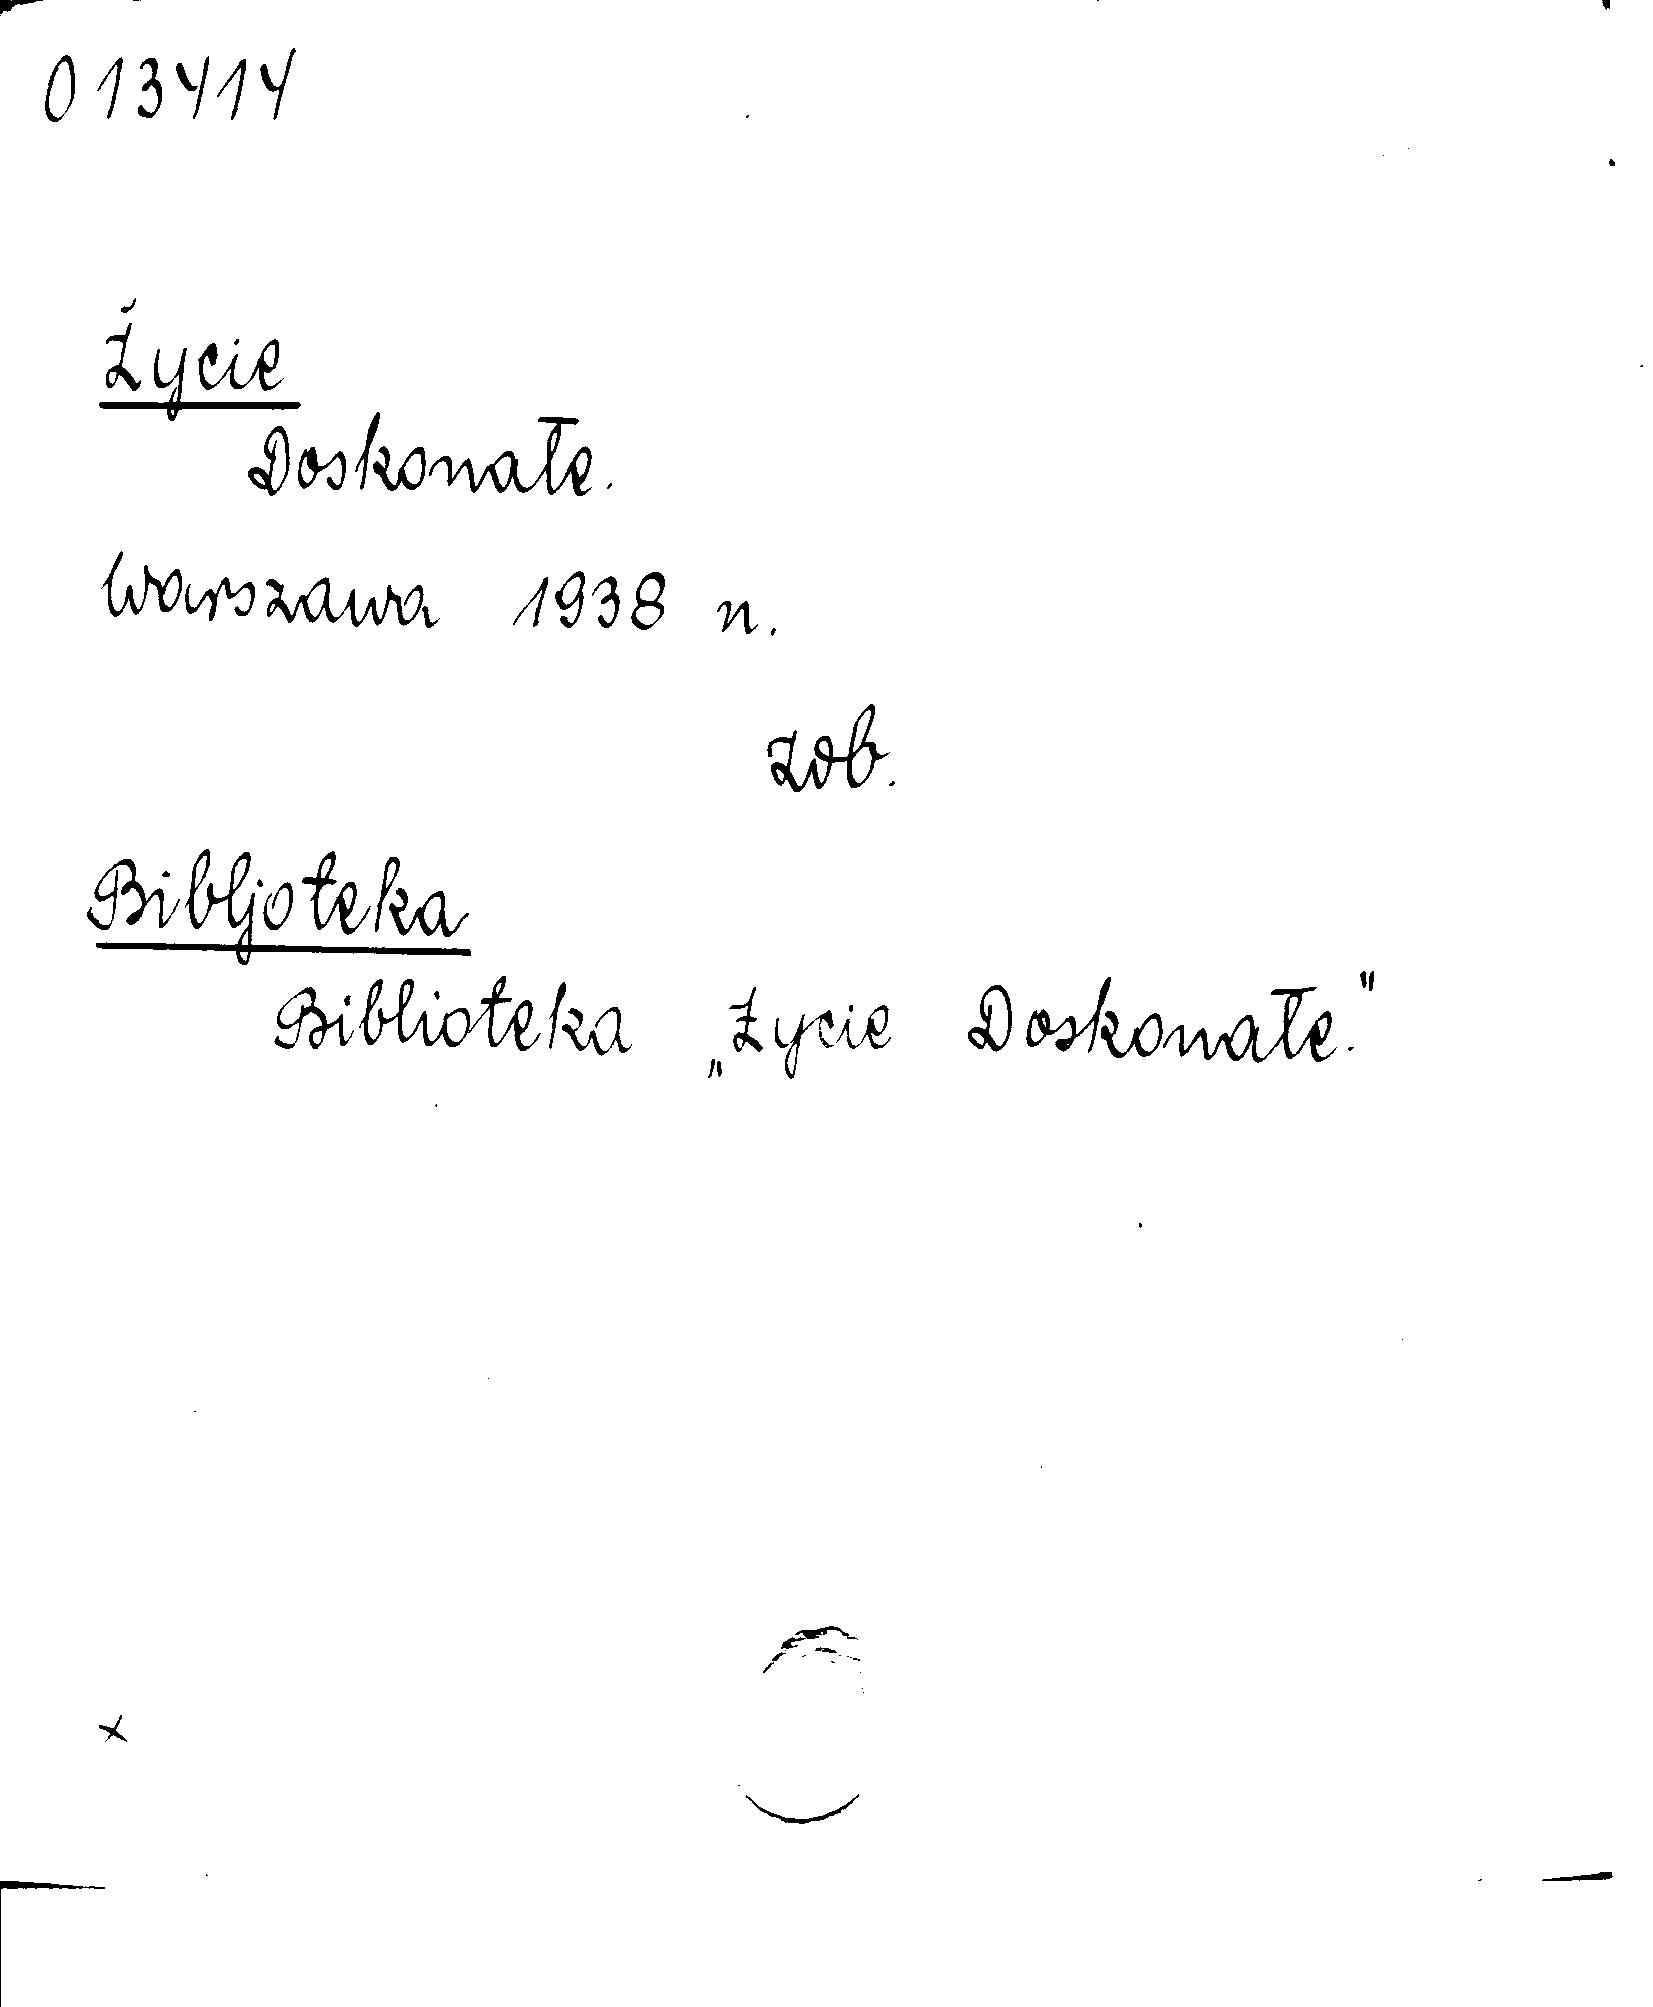 013414
Życie
Doskonałe.
Warszawa 1938 n.
zob.
Bibljoteka
Biblioteka „Życie Doskonałe."
x